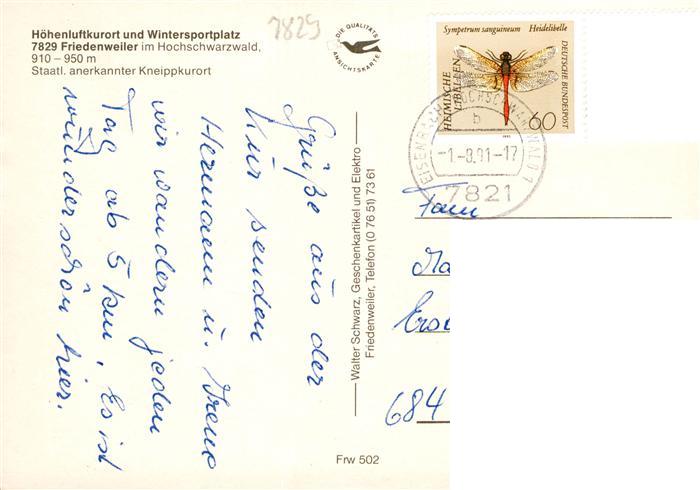 Höhenluftkurort und Wintersportplatz
7829 Friedenweiler im Hochschwarzwald,
910 – 950 m
Staatl. anerkannter Kneippkurort
7829
DIE QUALITÄTS
ANSICHTSKARTE
Sympetrum sanguineum Heidelibelle
HEIMISCHE
LIBELLEN
DEUTSCHE BUNDESPOST
60
1991
EISENBACH HOCHSCHWARZWALD 1
b
-1.-8.91-17
7821
Grüße aus der
Kur senden
Hermann u. Irene
wir wandern jeden
Tag ab 5 km. Es ist
wunderschön hier.
Walter Schwarz, Geschenkartikel und Elektro
Friedenweiler, Telefon (0 76 51) 73 61
Fam
Ma
684
Frw 502